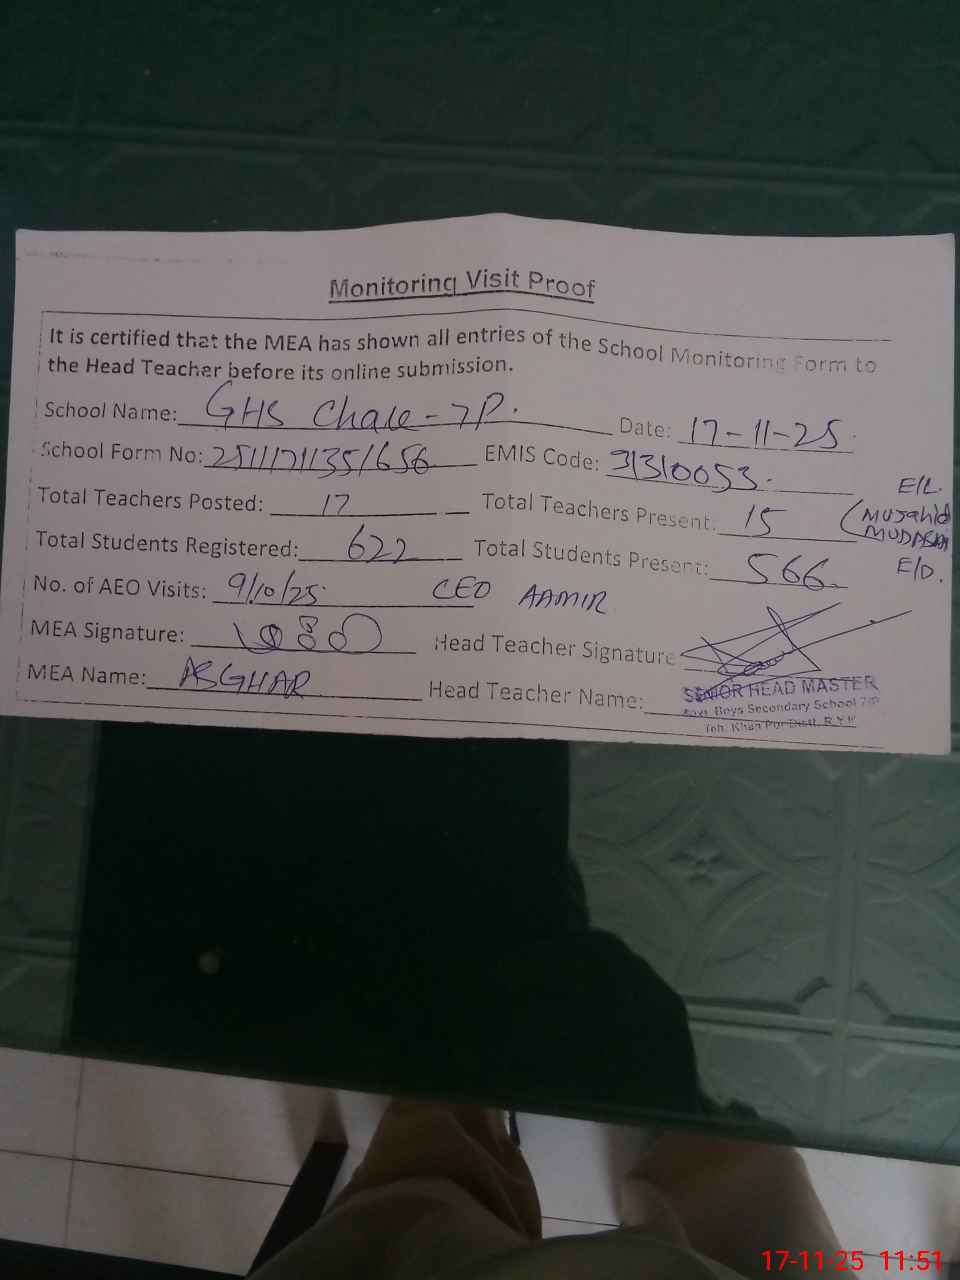 Monitoring Visit Proof
It is certified that the MEA has shown all entries of the School Monitoring Form to
the Head Teacher before its online submission.
School Name: GHS Chak-7P. Date: 17-11-25.
School Form No: 25111711351656 EMIS Code: 31310053.
Total Teachers Posted: 17 Total Teachers Present: 15
E/L.
(Mujahid
MUDASAR
E/D.
Total Students Registered: 622 Total Students Present: 566
No. of AEO Visits: 9/10/25 CEO AAMIR
MEA Signature: Head Teacher Signature
MEA Name: ASGHAR Head Teacher Name:
SENIOR HEAD MASTER
Govt. Boys Secondary School 7/P
Teh. Khan Pur Distt. R.Y.K
17-11-25 11:51